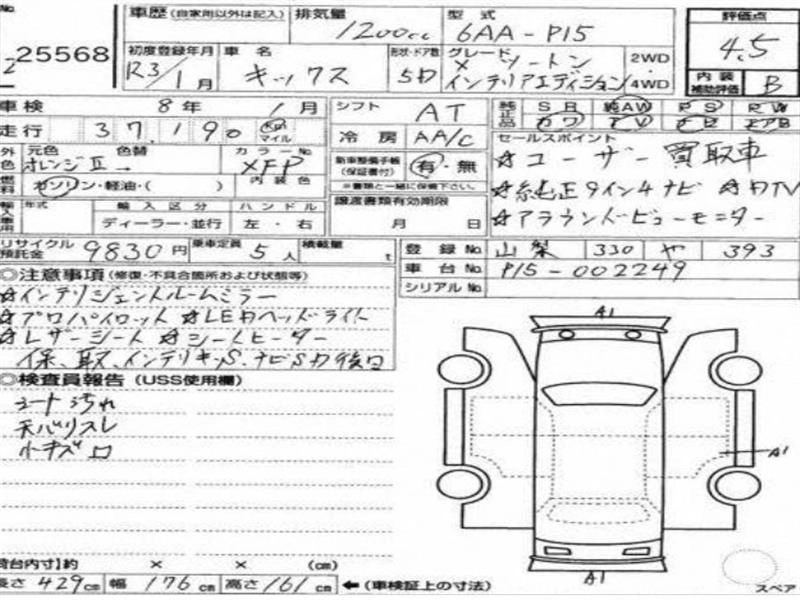 No. 25568
車歴 (自家用以外は記入)
排気量 1200cc
型式 6AA-P15
評価点 4.5
初度登録年月 R3/1月
車名 キックス
形状・ドア数 5D
グレード X ツートン
インテリアエディション
2WD
4WD
内装補助評価 B
車検 8年 1月
シフト AT
純正品 SR 純AW PS RW
カワ TV ナビ エアB
走行 37,190 km マイル
冷房 AA/C
セールスポイント
☆ユーザー買取車
外色 元色 色替 カラーNo.
オレンジⅡ→ XFP
新車整備手帳(保証書付) 有・無
※書類と一緒に保管下さい。
☆純正9インチナビ ☆DTV
燃料 ガソリン・軽油・( ) 内装色
☆アラウンドビューモニター
輸入車用 年式 輸入区分 ハンドル
ディーラー・並行 左・右
譲渡書類有効期限
月 日
リサイクル預託金 9830円
乗車定員 5人
積載量 t
登録No. 山梨 330 や 393
車台No. P15-002249
シリアルNo.
◎注意事項 (修復・不具合箇所および状態等)
☆インテリジェントルームミラー
☆プロパイロット ☆LEDヘッドライト
☆レザーシート ☆シートヒーター
保、取、インテリキー、S、ナビSD後日
◎検査員報告 (USS使用欄)
シート汚れ
天バリスレ
小キズ
A1
A1
A1
荷台内寸】約 × × (cm)
長さ 429cm 幅 176cm 高さ 161cm ←(車検証上の寸法)
スペア